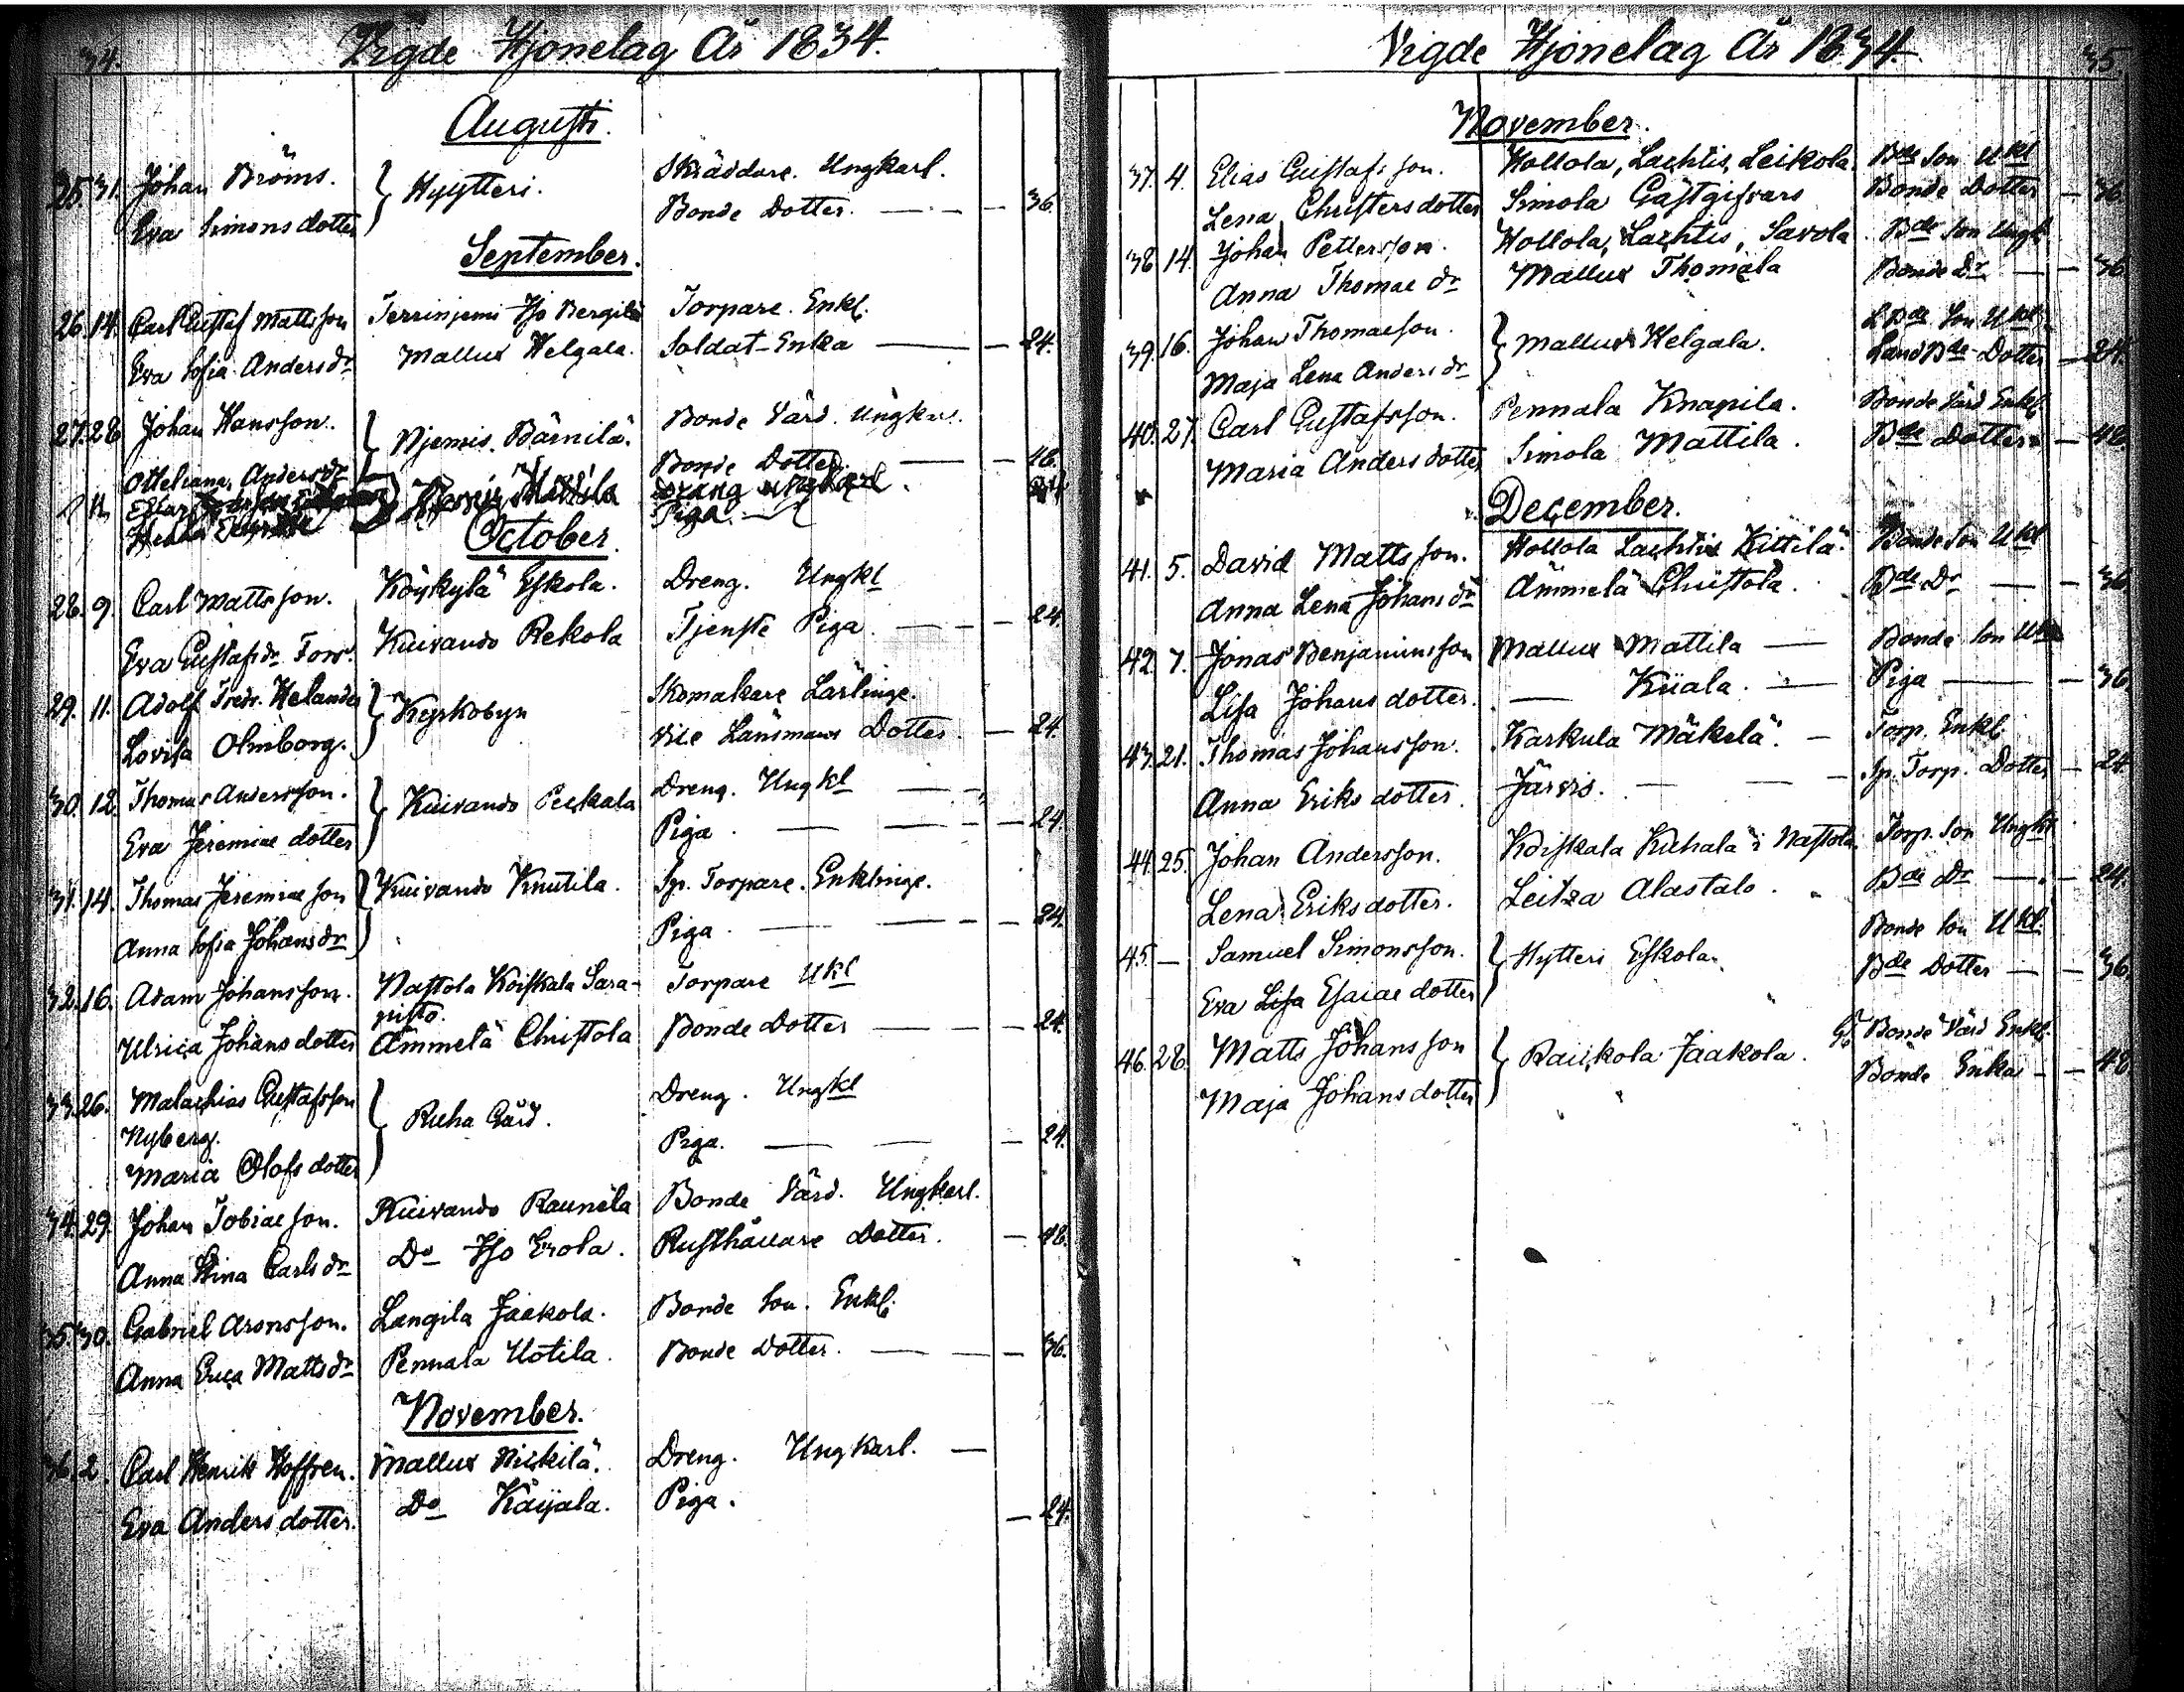 34.
Vigde Hjonelag År 1834.
Augusti.
25. 31. Johan Bröms. Hyytteri. Skräddare. Ungkarl.
Eva Simons dotter Bonde Dotter. — — — 36.
September.
26. 14. Carl Gustaf Mattsson Terrinjemi Hso Bergilä Torpare. Enkl.
Eva Sofia Anders dr Mallus Helgala. Soldat-Enka — — 24.
27. 28 Johan Hansson. Njemis. Bärnilä. Bonde Värd. Ungkarl.
Otteliana Anders dr Bonde Dotter. — — 48.
Mattila Dräng Ungkarl.
Hedda Piga. —
October.
28. 9. Carl Mattsson. Köykylä Eskola. Dreng. Ungkl
Eva Gustafs dr Forss. Kuivando Rekola Tjenste Piga. — — — 24.
29. 11. Adolf Fredr. Helander Kyrkobyn Skomakare Lärlinge.
Lovisa Olmborg. Vice Länsmans Dotter. — 24.
30. 12. Thomas Andersson. Kuivando Peckala Dreng. Ungkl —
Eva Jeremiae dotter Piga. — — — 24.
31. 14. Thomas Jeremiae son Kuivando Knutila. Sp. Torpare. Enklinge.
Anna Sofia Johans dr Piga. — — — 24.
32. 16. Adam Johansson. Nastola Koiskala Sara-
gusto. Torpare Ukl
Ulrica Johans dotter Ämmelä Christola Bonde Dotter — — — 24.
33. 26. Malachias Gustafsson Ruha Gård. Dreng. Ungkl
Nyberg.
Maria Olofs dotter Piga. — — — 24.
34. 29. Johan Tobiae son. Kuivando Raunela Bonde Värd. Ungkarl.
Anna Stina Carls dr Do Hso Erola. Rusthållare Dotter. — 48.
35. 30. Gabriel Aronsson. Langila Jaakola. Bonde Son. Enkl.
Anna Erica Matts dr Pennala Uotila. Bonde Dotter. — — — 36.
November.
36. 2. Carl Henrik Hoffren. Mallus Niskilä. Dreng. Ungkarl. —
Eva Anders dotter. Do Käijala. Piga. — 24.
35.
Vigde Hjonelag År 1834.
November.
37. 4. Elias Gustafsson. Hollola, Lachtis, Leikola. Bde Son Ukl
Lena Christers dotter Simola Gästgifvars Bonde Dotter — 36
38. 14. Johan Pettersson. Hollola, Lachtis, Savola. Bde Son Ungk
Anna Thomae dr Mallus Thomala Bonde Dr — — 36
39. 16. Johan Thomaeson. Mallus Helgala. L Bde Son Ukl.
Maja Lena Anders dr Land Bde Dotter — 24.
40. 27. Carl Gustafsson. Pennala Knapila. Bonde Värd Enkl.
Maria Anders dotter Simola Mattila. Bde Dotter — 48
December.
41. 5. David Mattsson. Hollola Lachtis Kittilä. Bonde Son Ukl
Anna Lena Johans dr Ämmelä Christola. Bde Dr — — 36
42. 7. Jonas Benjaminsson Mallus Mattila — Bonde Son Ukl
Lisa Johans dotter. — Kiiala. — Piga — — 36
43. 21. Thomas Johansson. Karkula Mäkelä. — Torp. Enkl.
Anna Eriks dotter. Järvis. — — — Sp. Torp. Dotter — 24.
44. 25. Johan Andersson. Koiskala Kuhala i Nastola. Torp. Son Ungkl
Lena Eriks dotter. Leitza Alastalo. Bde Dr — — 24.
45. — Samuel Simonsson. Hytteri Eskola. Bonde Son Ukl.
Eva Lisa Esaiae dotter Bde Dotter — — 36
46. 28. Matts Johansson Rauskola Jaakola. Bonde Värd Enkl.
Maja Johans dotter Bonde Enka — — 48.